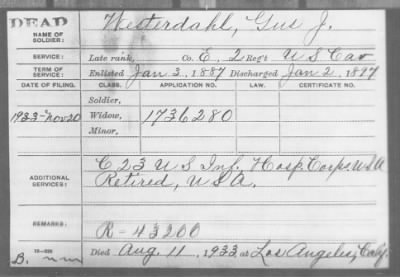 DEAD
NAME OF SOLDIER: Westerdahl, Gus J.
SERVICE: Late rank, Co. E, 2 Reg't U S Cav
TERM OF SERVICE: Enlisted Jan 3, 1887 Discharged Jan 2, 1897
DATE OF FILING. CLASS. APPLICATION NO. LAW. CERTIFICATE NO.
Soldier,
1933-Nov 20 Widow, 1736280
Minor,
ADDITIONAL SERVICES: C 23 U S Inf. Hosp. Corps U.S.A
Retired, U.S.A.
REMARKS: R-43200
Died Aug. 11, 1933 at Los Angeles, Calif.
B.